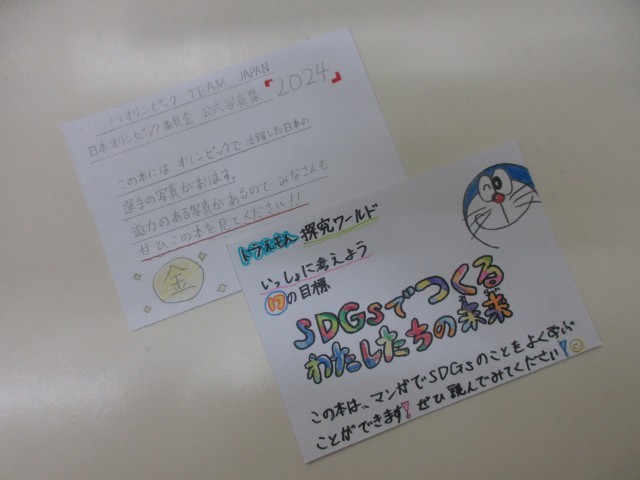 パリオリンピック TEAM JAPAN
日本オリンピック委員会 公式写真集
「2024」
この本には、オリンピックで活躍した日本の
選手の写真があります。
迫力のある写真があるので みなさんも
ぜひこの本を見てください!!
金
ドラえもん 探究ワールド
いっしょに考えよう
17の目標
SDGsでつくる
わたしたちの未来
この本は、マンガでSDGsのことをよく学ぶ
ことができます! ぜひ 読んでみてください!